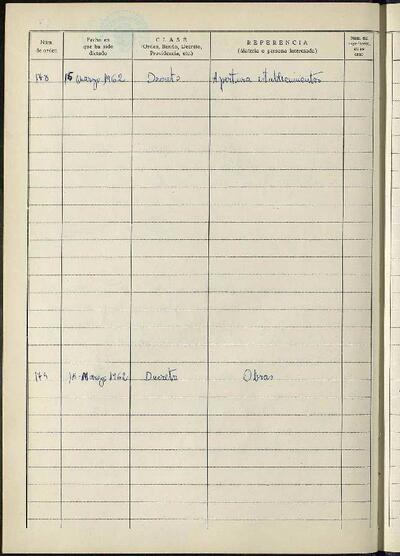 Núm. de orden
Fecha en que ha sido dictado
CLASE
(Orden, Bando, Decreto, Providencia, etc.)
REFERENCIA
(Materia o persona interesada)
178 16 Marzo 1962 Decreto Apertura establecimientos
179 Marzo 1962 Decreto Obras